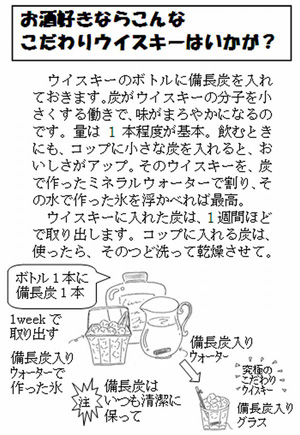 お酒好きならこんな
こだわりウイスキーはいかが？
ウイスキーのボトルに備長炭を入れ
ておきます。炭がウイスキーの分子を小
さくする働きで、味がまろやかになるの
です。量は 1 本程度が基本。飲むとき
にも、コップに小さな炭を入れると、お
いしさがアップ。そのウイスキーを、炭
で作ったミネラルウォーターで割り、そ
の水で作った氷を浮かべれば最高。
ウイスキーに入れた炭は、1週間ほど
で取り出します。コップに入れる炭は、
使ったら、そのつど洗って乾燥させて。
ボトル1本に
備長炭1本
1weekで
取り出す
備長炭入り
ウォーターで
作った氷
注
備長炭は
いつも清潔に
保って
備長炭入り
ウォーター
究極の
こだわり
ウイスキー
備長炭入り
グラス